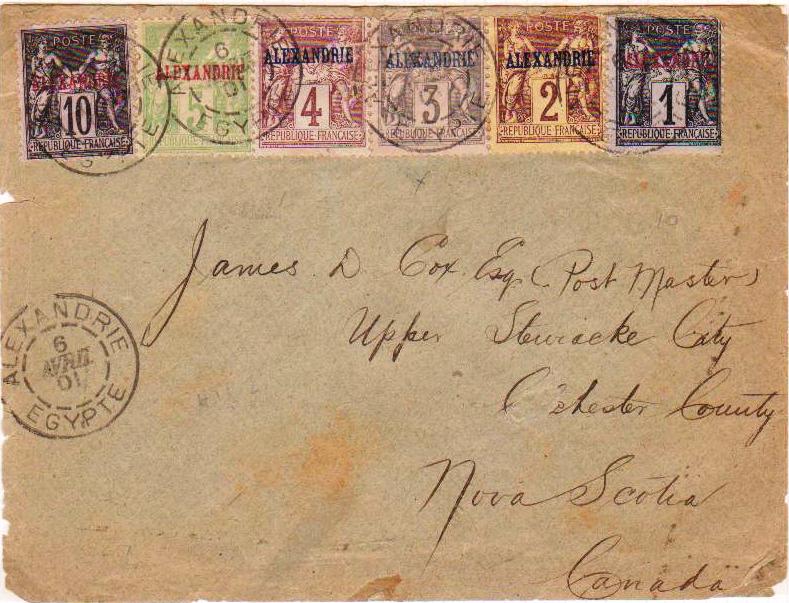 POSTE ALEXANDRIE 10 REPUBLIQUE FRANÇAISE
ALEXANDRIE 5 REPUBLIQUE FRANÇAISE
POSTE ALEXANDRIE 4 REPUBLIQUE FRANÇAISE
ALEXANDRIE 3 REPUBLIQUE FRANÇAISE
POSTE ALEXANDRIE 2 REPUBLIQUE FRANÇAISE
POSTE ALEXANDRIE 1 REPUBLIQUE FRANÇAISE
ALEXANDRIE 6 01 EGYPTE
10
James D Cox Esq (Post Master)
Upper Stewiacke City
C'chester County
Nova Scotia
Canada
ALEXANDRIE
6
AVRIL
01
EGYPTE